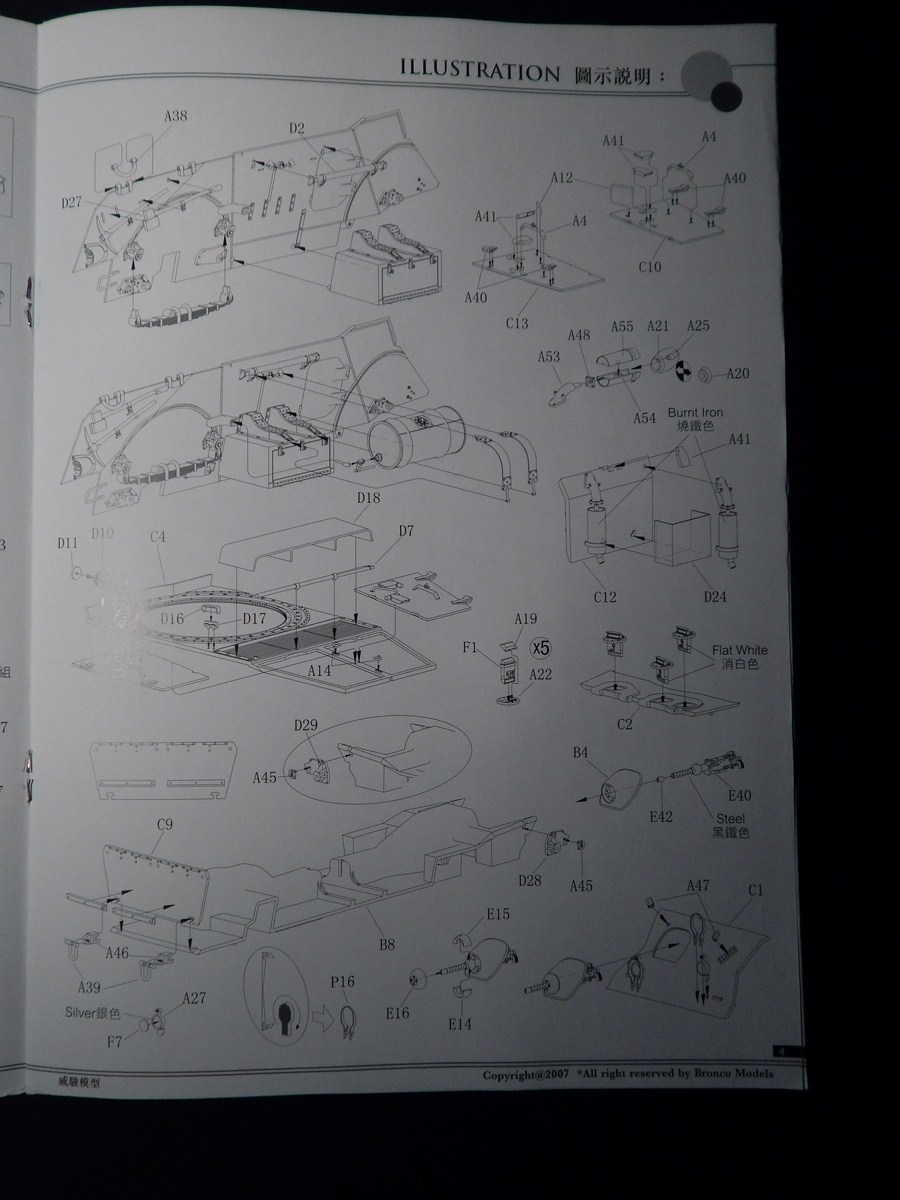 ILLUSTRATION 圖示説明：
A38
D2
D27
A41
A4
A12
A40
A41
A4
C10
A40
C13
A48
A55
A21
A25
A53
A20
A54
Burnt Iron
燒鐵色
A41
D18
D11
D10
C4
D7
C12
D24
3
D16
D17
A14
F1
A19
X5
A22
Flat White
消白色
C2
組
7
D29
A45
B4
E42
E40
Steel
黑鐵色
C9
D28
A45
A47
C1
A46
A39
B8
E15
E16
E14
P16
A27
Silver銀色
F7
4
威駿模型
Copyright@2007 *All right reserved by Bronco Models